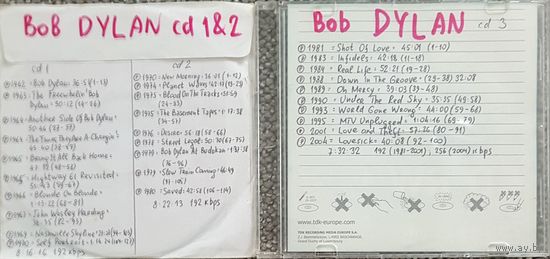 BOB DYLAN cd 1&2
cd 1
1962 = Bob Dylan = 36:51 (1-13)
1963 = The Freewheelin' Bob
Dylan = 50:12 (14-26)
1964 = Another Side Of Bob Dylan =
50:46
1964 = The Times They Are A-Changin'
1965 = Bring It All Back Home =
1965 = Highway 61 Revisited =
1966 = Blonde On Blonde =
1967 = John Wesley Harding =
1969 = Nashville Skyline =
1970 = Self Portrait =
8:16:16 192 kbps
cd 2
1970 = New Morning = 36:01 (1-12)
1974 = Planet Waves
1975 = Blood On The Tracks = 51:59
(24-33)
1975 = The Basement Tapes = 1:17:38
(34-57)
1976 = Desire = 56:18 (58-66)
1978 = Street Legal = 50:30 (67-75)
1979 = Bob Dylan At Budokan = 1:37:38
(76-96)
1979 = Slow Train Coming = 46:49
(97-105)
1980 = Saved = 42:58 (106-114)
8:22:13 192 kbps
BOB DYLAN cd 3
1981 = Shot Of Love = 45:01 (1-10)
1983 = Infidels = 42:18 (11-18)
1984 = Real Life = 52:21 (19-28)
1988 = Down In The Groove = (29-38) 32:08
1989 = Oh Mercy = 39:03 (39-48)
1990 = Under The Red Sky = 35:35 (49-58)
1993 = World Gone Wrong = 44:00 (59-68)
1995 = MTV Unplugged = 1:04:16 (69-79)
2001 = Love and Theft = 57:26 (80-91)
2004 = Lovesick = 40:08 (92-100)
7:32:32 192 (1981-2001), 256 (2004) kbps
www.tdk-europe.com
TDK RECORDING MEDIA EUROPE S.A.
Z.I. Bommelscheuer, L-4902 BASCHARAGE
Grand Duchy of Luxembourg
www.ay.by